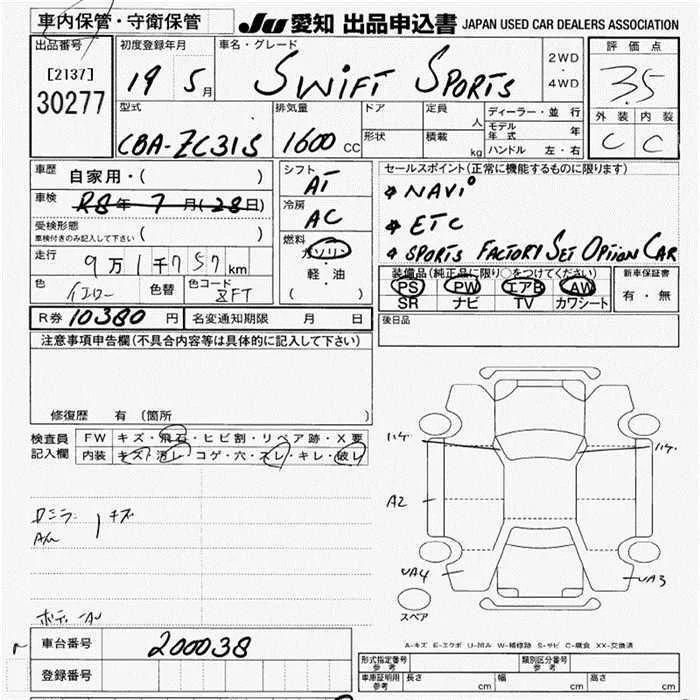 車内保管・守衛保管 JU 愛知 出品申込書 JAPAN USED CAR DEALERS ASSOCIATION
出品番号 初度登録年月 車名・グレード 評価点
[2137] 19 5月 SWIFT SPORTS 2WD・4WD 3.5
30277
型式 排気量 ドア 定員 人 ディーラー・並行 外装 内装
CBA-ZC31S 1600 CC 形状 積載 kg モデル年式 年 C C
ハンドル 左・右
車歴 自家用・( ) シフト AT セールスポイント(正常に機能するものに限ります)
車検 R8年 7月(28日) 冷房 AC NAVi
受検形態 車検付きのみ記入して下さい ( ) ETC
走行 9万1千757km 燃料 ガソリン・軽・油 ( ) SPORTS FACTORY SET OPTiON CAR
色 イエロー 色替 色コード ZFT
装備品(純正品に限り○をつけてください) 新車保証書
PS PW エアB AW 有・無
SR ナビ TV カワシート
R券 10380 円 名変通知期限 月 日 後日品
注意事項申告欄(不具合内容等は具体的に記入して下さい)
修復歴 有 (箇所
検査員記入欄 FW キズ・飛石・ヒビ割・リペア跡・X要
内装 キズ・汚レ・コゲ・穴・スレ・キレ・破レ
ハケ ハケ
A2
UA4 UA3
スペア
キズ
A-キズ E-エクボ U-凹み W-補修跡 S-サビ C-腐食 XX-交換済
車台番号 200038
登録番号
形式指定番号 参考 類別区分番号 参考
車庫証明用 参考 長さ cm 幅 cm 高さ cm